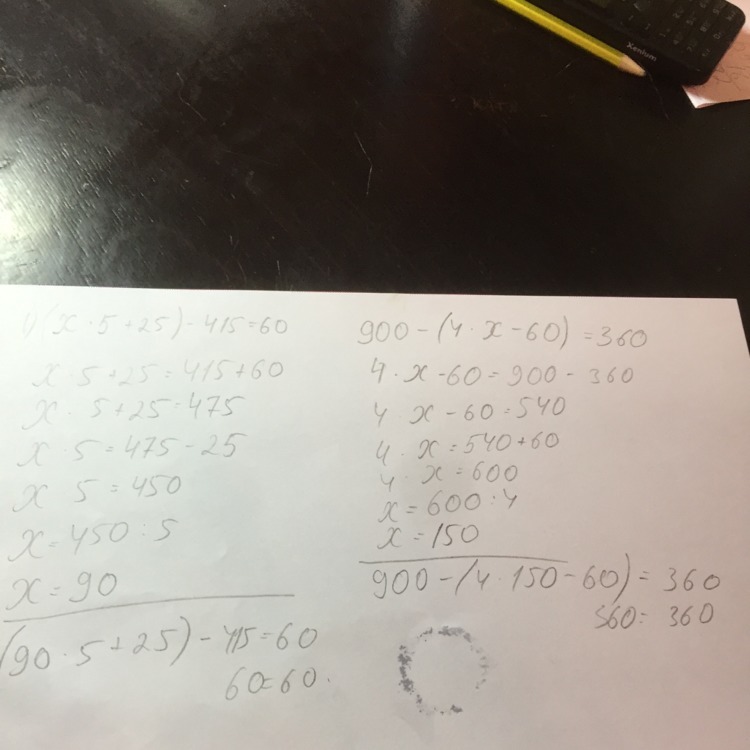 Xenium
(x · 5 + 25) - 415 = 60
x · 5 + 25 = 415 + 60
x · 5 + 25 = 475
x · 5 = 475 - 25
x 5 = 450
x = 450 : 5
x = 90
(90 · 5 + 25) - 415 = 60
60 = 60.
900 - (4 · x - 60) = 360
4 · x - 60 = 900 - 360
4 x - 60 = 540
4 · x = 540 + 60
4 · x = 600
x = 600 : 4
x = 150
900 - (4 · 150 - 60) = 360
360 = 360